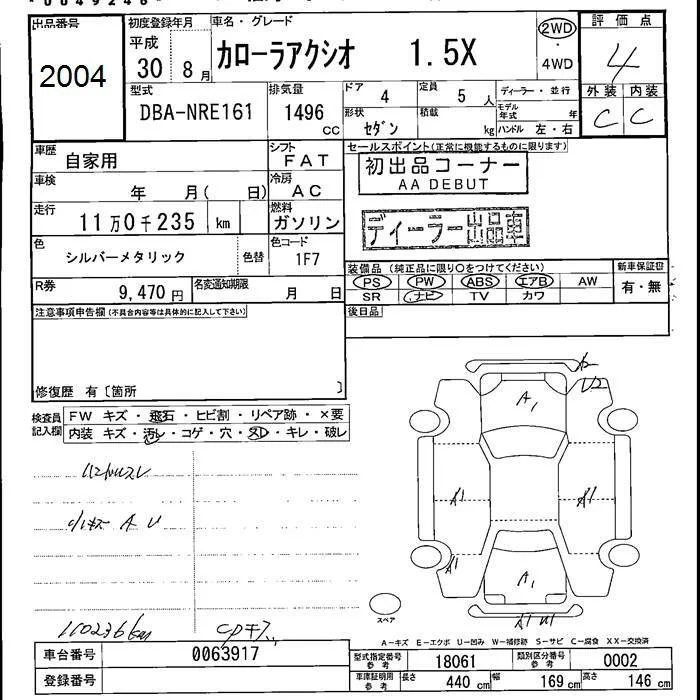 出品番号 2004
初度登録年月 平成 30 8月
車名・グレード カローラアクシオ 1.5X
2WD・4WD
評価点 4
外装 内装
C C
型式 DBA-NRE161
排気量 1496 CC
ドア 4 定員 5人
形状 セダン 積載 kg
ディーラー・並行
モデル年式 年
ハンドル 左・右
車歴 自家用
シフト FAT
車検 年 月( 日)
冷房 AC
走行 11万0千235 km
燃料 ガソリン
色 シルバーメタリック 色替
色コード 1F7
R券 9,470円
名変通知期限 月 日
セールスポイント(正常に機能するものに限ります)
初出品コーナー
AA DEBUT
ディーラー出品車
装備品(純正品に限り○をつけてください)
新車保証書
PS PW ABS エアB AW
有・無
SR ナビ TV カワ
後日品
注意事項申告欄(不具合内容等は具体的に記入して下さい)
修復歴 有〔箇所 〕
検査員記入欄
FW キズ・飛石・ヒビ割・リペア跡・×要
内装 キズ・汚レ・コゲ・穴・スレ・キレ・破レ
A U
110236km
A1
U2
A1
A1
A1
A1
A1 W1
スペア
A-キズ E-エクボ U-凹み W-補修跡 S-サビ C-腐食 XX-交換済
車台番号 0063917
登録番号
型式指定番号 参考 18061
類別区分番号 参考 0002
車庫証明用 参考 長さ 440cm 幅 169cm 高さ 146cm